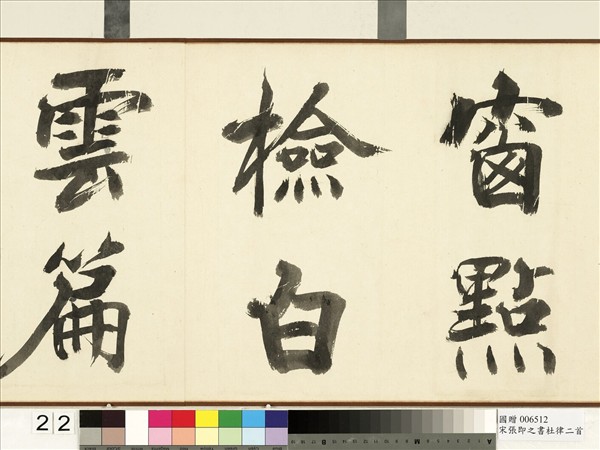 窗點
檢白
雲篇
22
國贈 006512
宋張即之書杜律二首